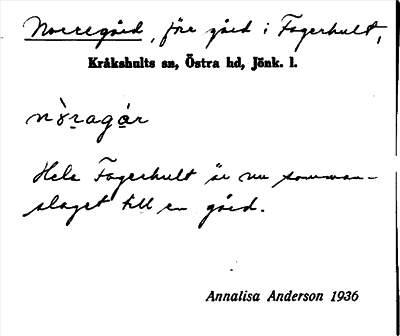 Norregård, förr gård i Fagerhult,
Kråkshults sn, Östra hd, Jönk. l.
nòragạr
Hela Fagerhult är nu samman-
slaget till en gård.
Annalisa Anderson 1936